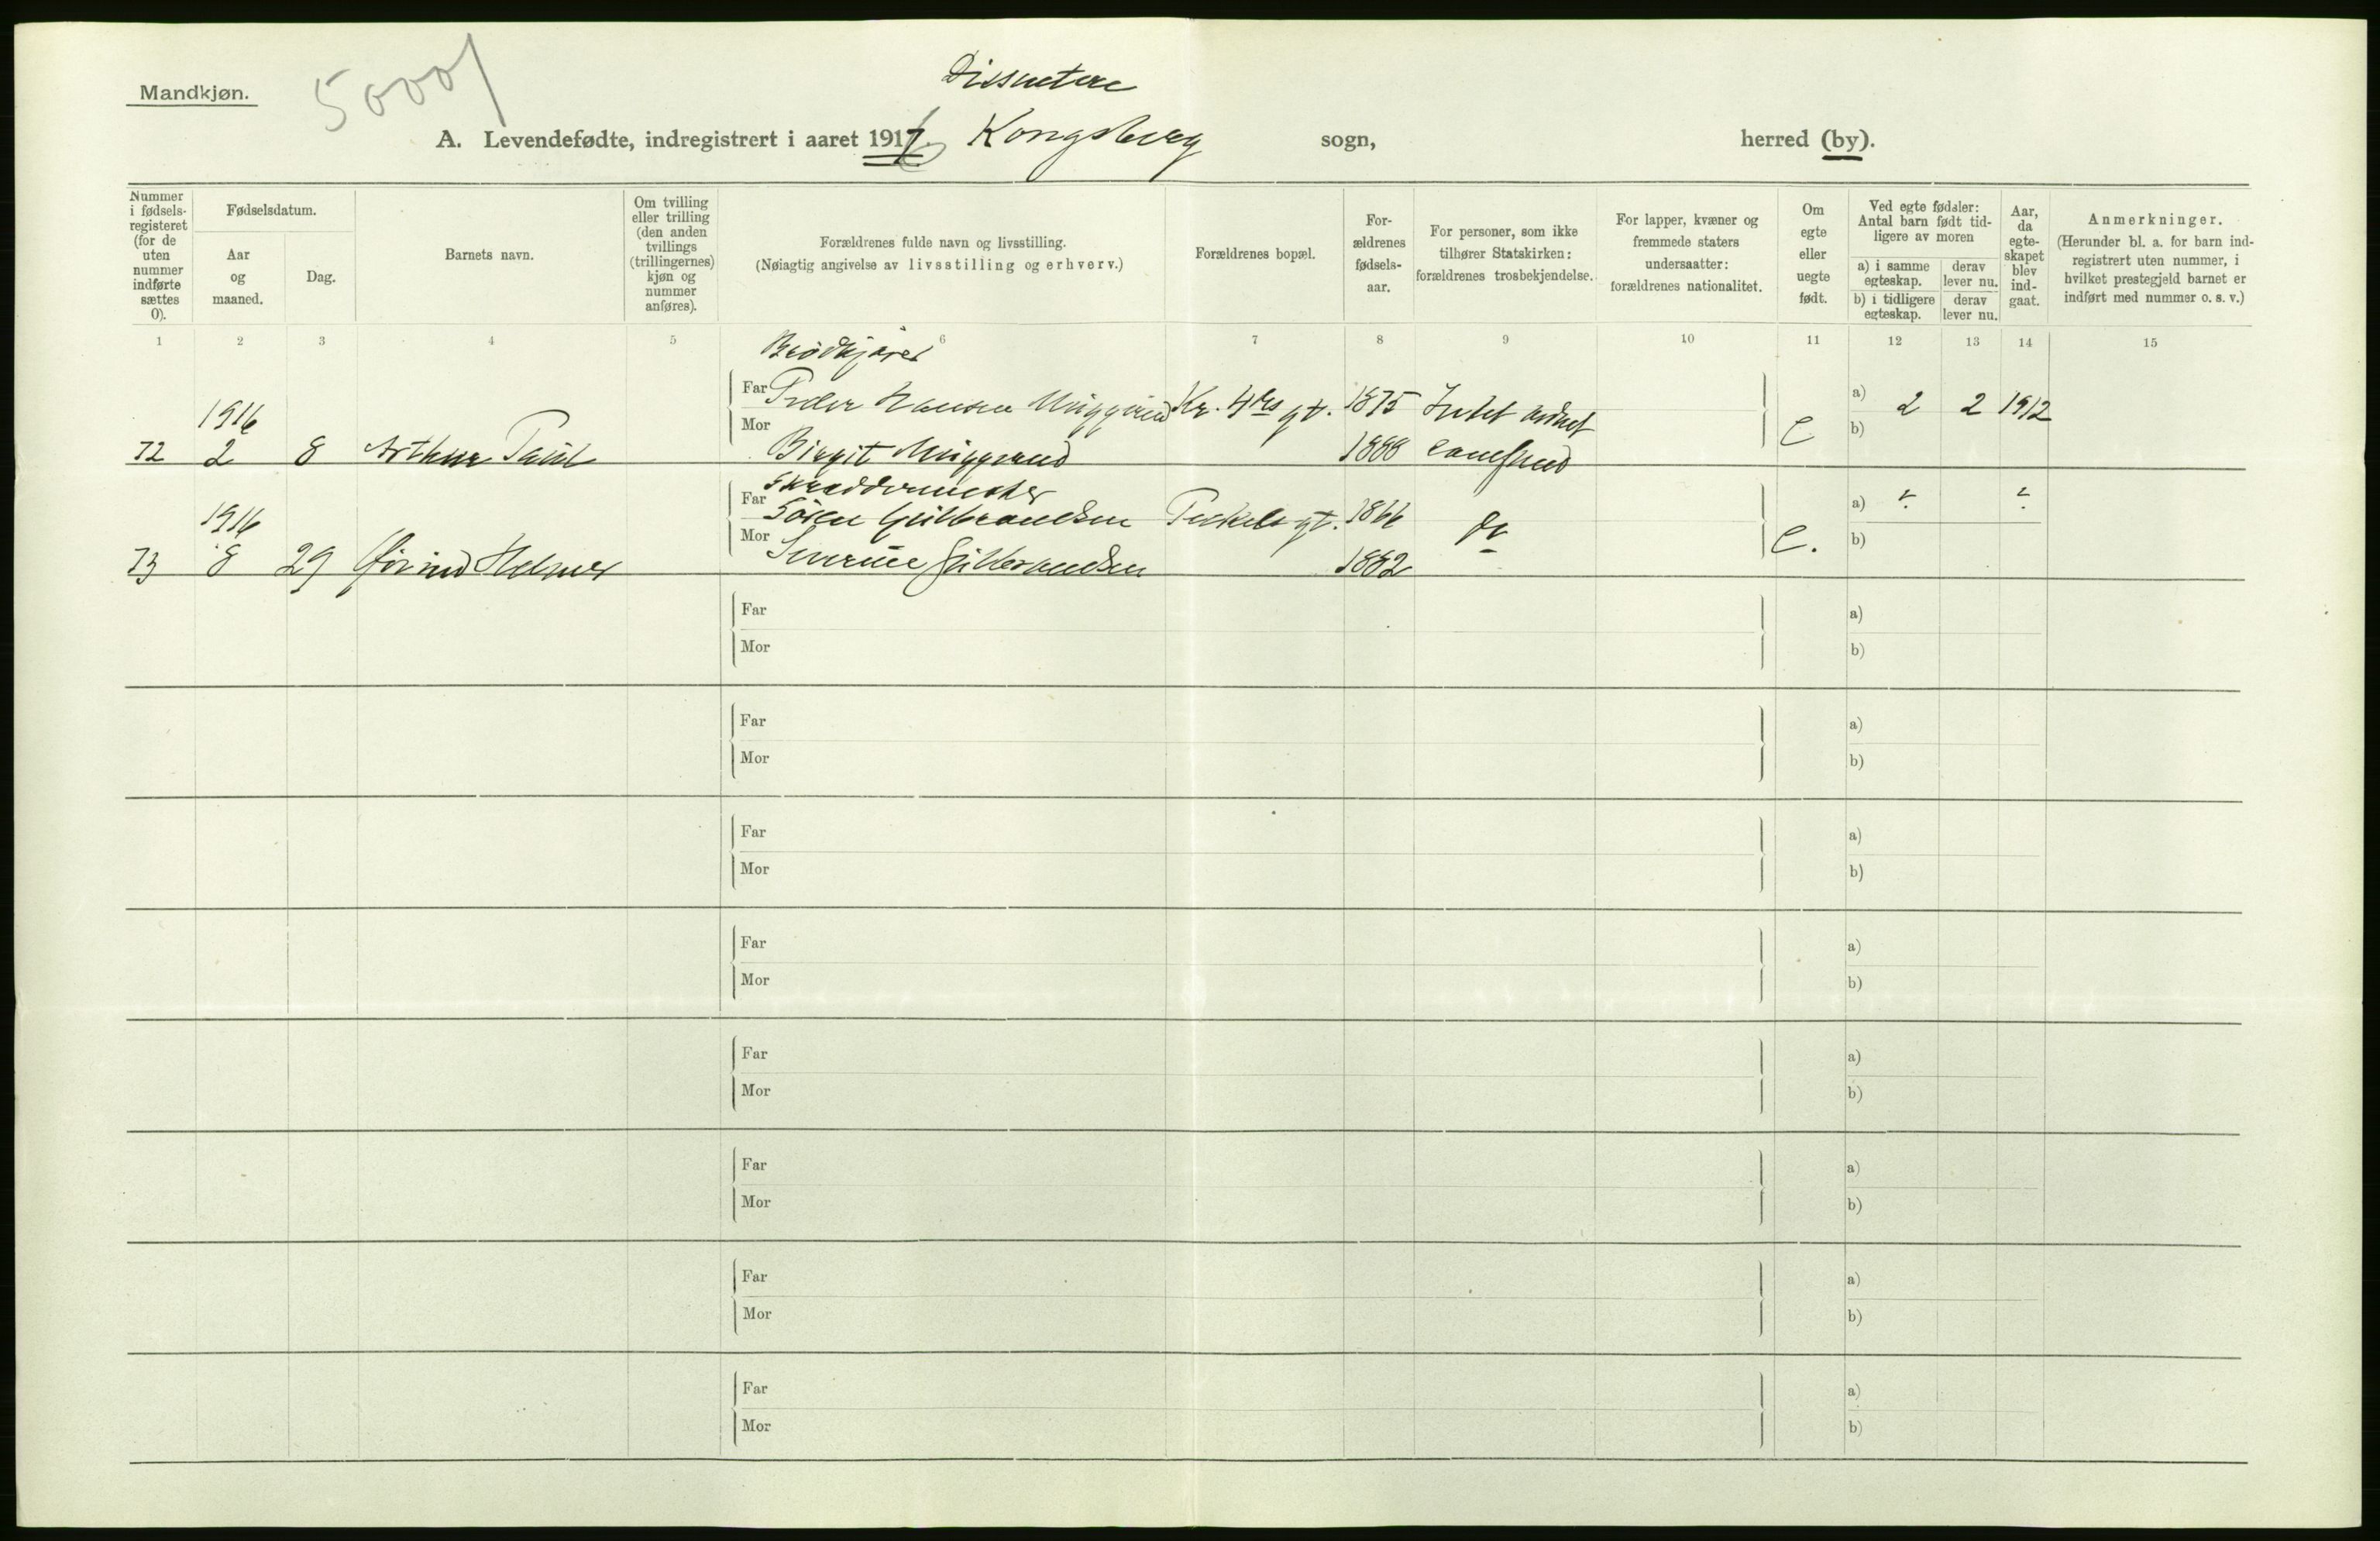 Mandkjøn.
50001
Dissentere
A. Levendefødte, indregistrert i aaret 1917. Kongsberg sogn, herred (by).
Nummer i fødsels-registeret (for de uten nummer indførte sættes 0).
Fødselsdatum.
Aar og maaned.
Dag.
Barnets navn.
Om tvilling eller trilling (den anden tvillings (trillingernes) kjøn og nummer anføres).
Forældrenes fulde navn og livsstilling.
(Nøiagtig angivelse av livsstilling og erhverv.)
Forældrenes bopæl.
For-ældrenes fødsels-aar.
For personer, som ikke tilhører Statskirken: forældrenes trosbekjendelse.
For lapper, kvæner og fremmede staters undersaatter: forældrenes nationalitet.
Om egte eller uegte født.
Ved egte fødsler: Antal barn født tid-ligere av moren
a) i samme egteskap.
derav lever nu.
b) i tidligere egteskap.
derav lever nu.
Aar, da egte-skapet blev ind-gaat.
Anmerkninger.
(Herunder bl. a. for barn ind-registrert uten nummer, i hvilket prestegjeld barnet er indført med nummer o. s. v.)
1 2 3 4 5 6 7 8 9 10 11 12 13 14 15
Brødkjører
Far Peder Hansen Kr. 4des gt. 1875 Intet ordnet a) 2 2 1912
1916
Mor b)
72 2 8 Arthur Paul Birgit 1888 samfund e
Skreddermester
Far Søren Gulbrandsen gt. 1866 do a) ? ?
1916
Mor e. b)
73 8 29 Øivind Helmer Gulbrandsen 1882
Far a)
Mor b)
Far a)
Mor b)
Far a)
Mor b)
Far a)
Mor b)
Far a)
Mor b)
Far a)
Mor b)
Far a)
Mor b)
Far a)
Mor b)